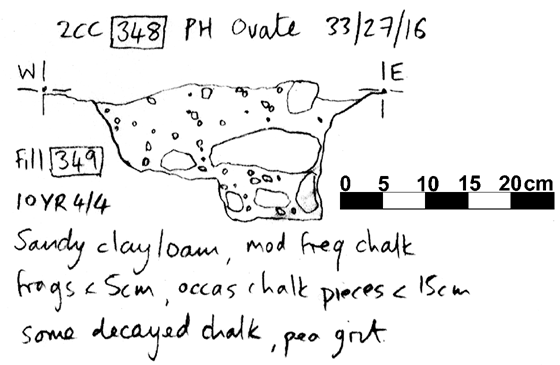 2CC 348 PH Ovate 33/27/16
W E
Fill 349
10YR 4/4
0 5 10 15 20cm
Sandy clay loam, mod freq chalk
frags < 5cm, occas chalk pieces < 15cm
some decayed chalk, pea grit.